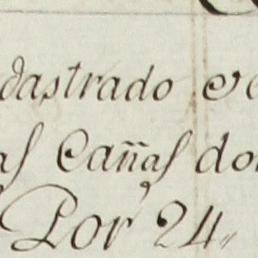 dastrado
Cañas do
Por 24